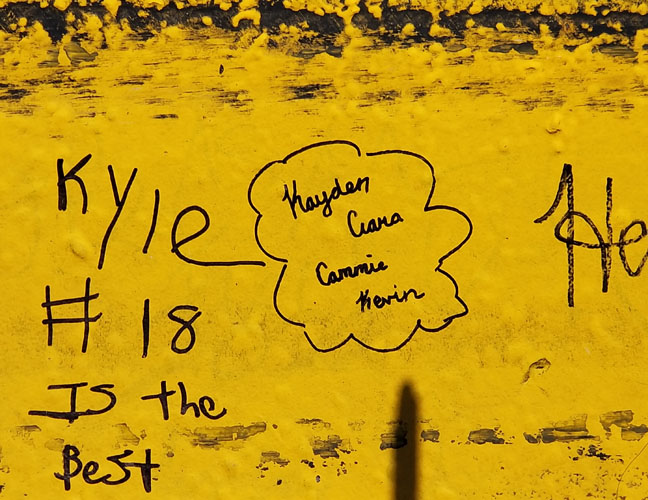 Kyle
# 18
Is the
Best
Kayden
Ciara
Cammie
Kevin
He